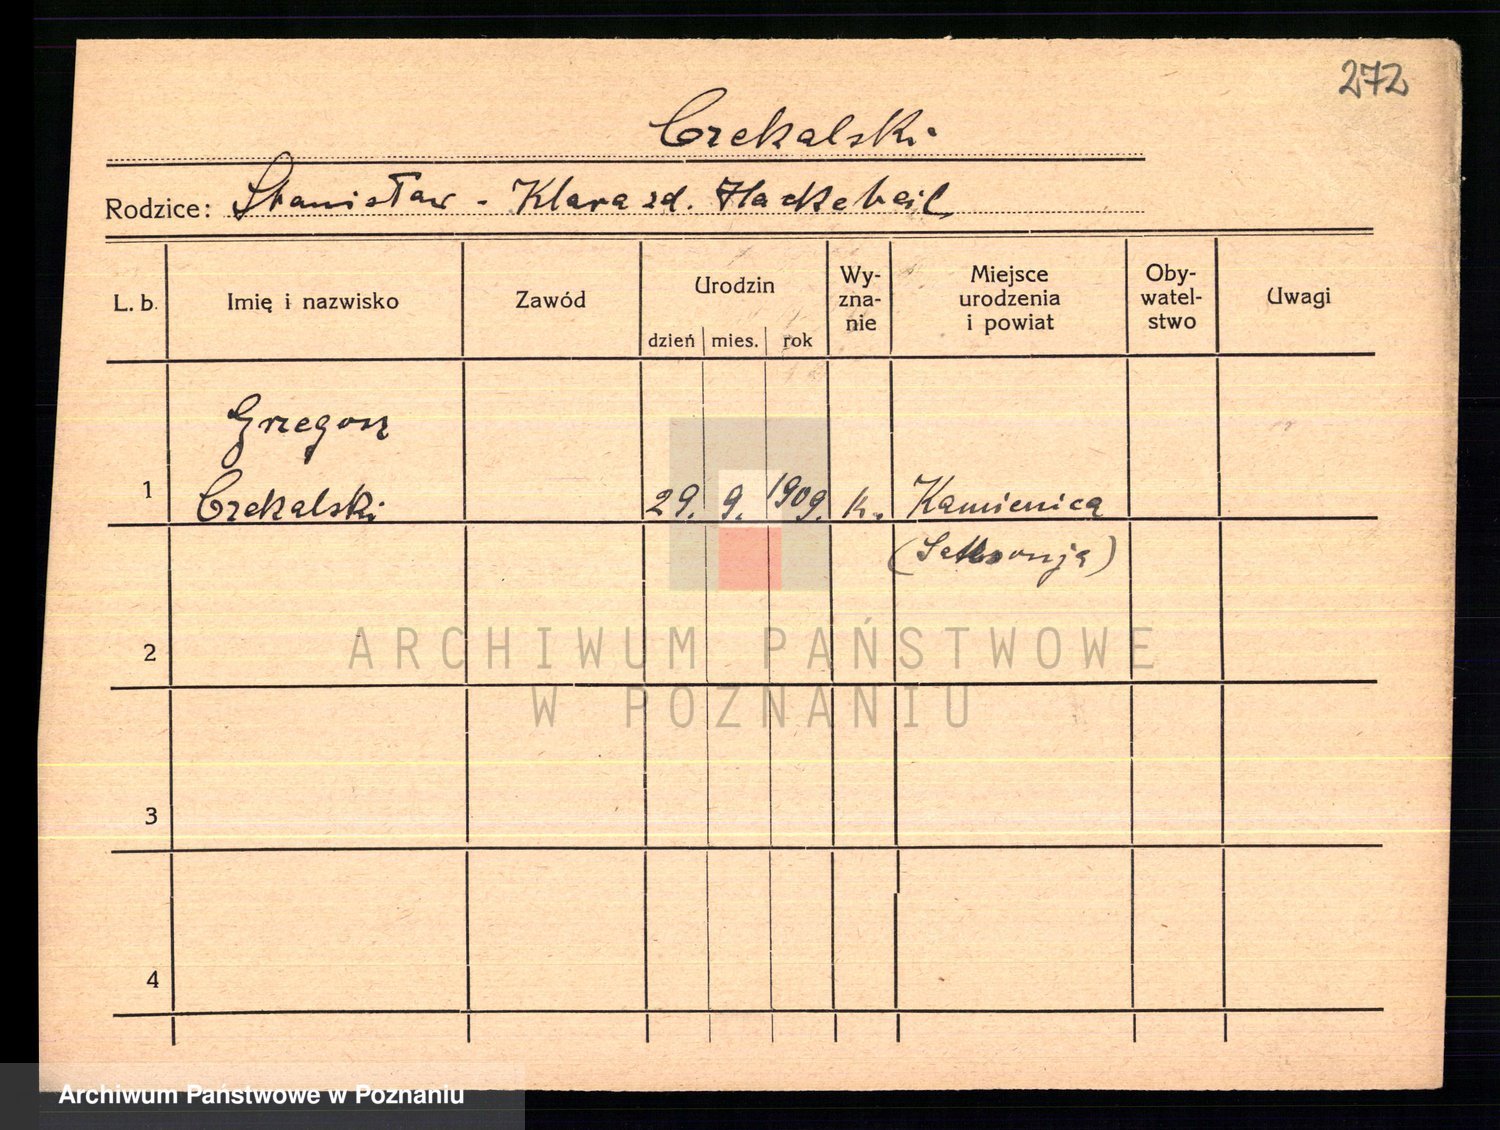 272
Czekalski
Rodzice: Stanisław - Klara zd. Hackebeil
L. b. Imię i nazwisko Zawód Urodzin dzień mies. rok Wy-zna-nie Miejsce urodzenia i powiat Oby-watel-stwo Uwagi
Grzegorz
1 Czekalski 29. 9. 1909. k. Kamienica
(Saksonja)
2
ARCHIWUM PAŃSTWOWE
W POZNANIU
3
4
Archiwum Państwowe w Poznaniu